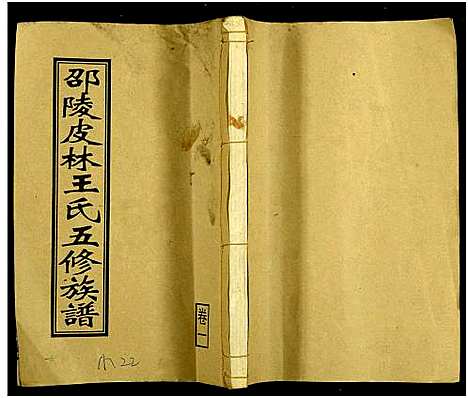 邵陵皮林王氏五修族譜
卷一
A 22